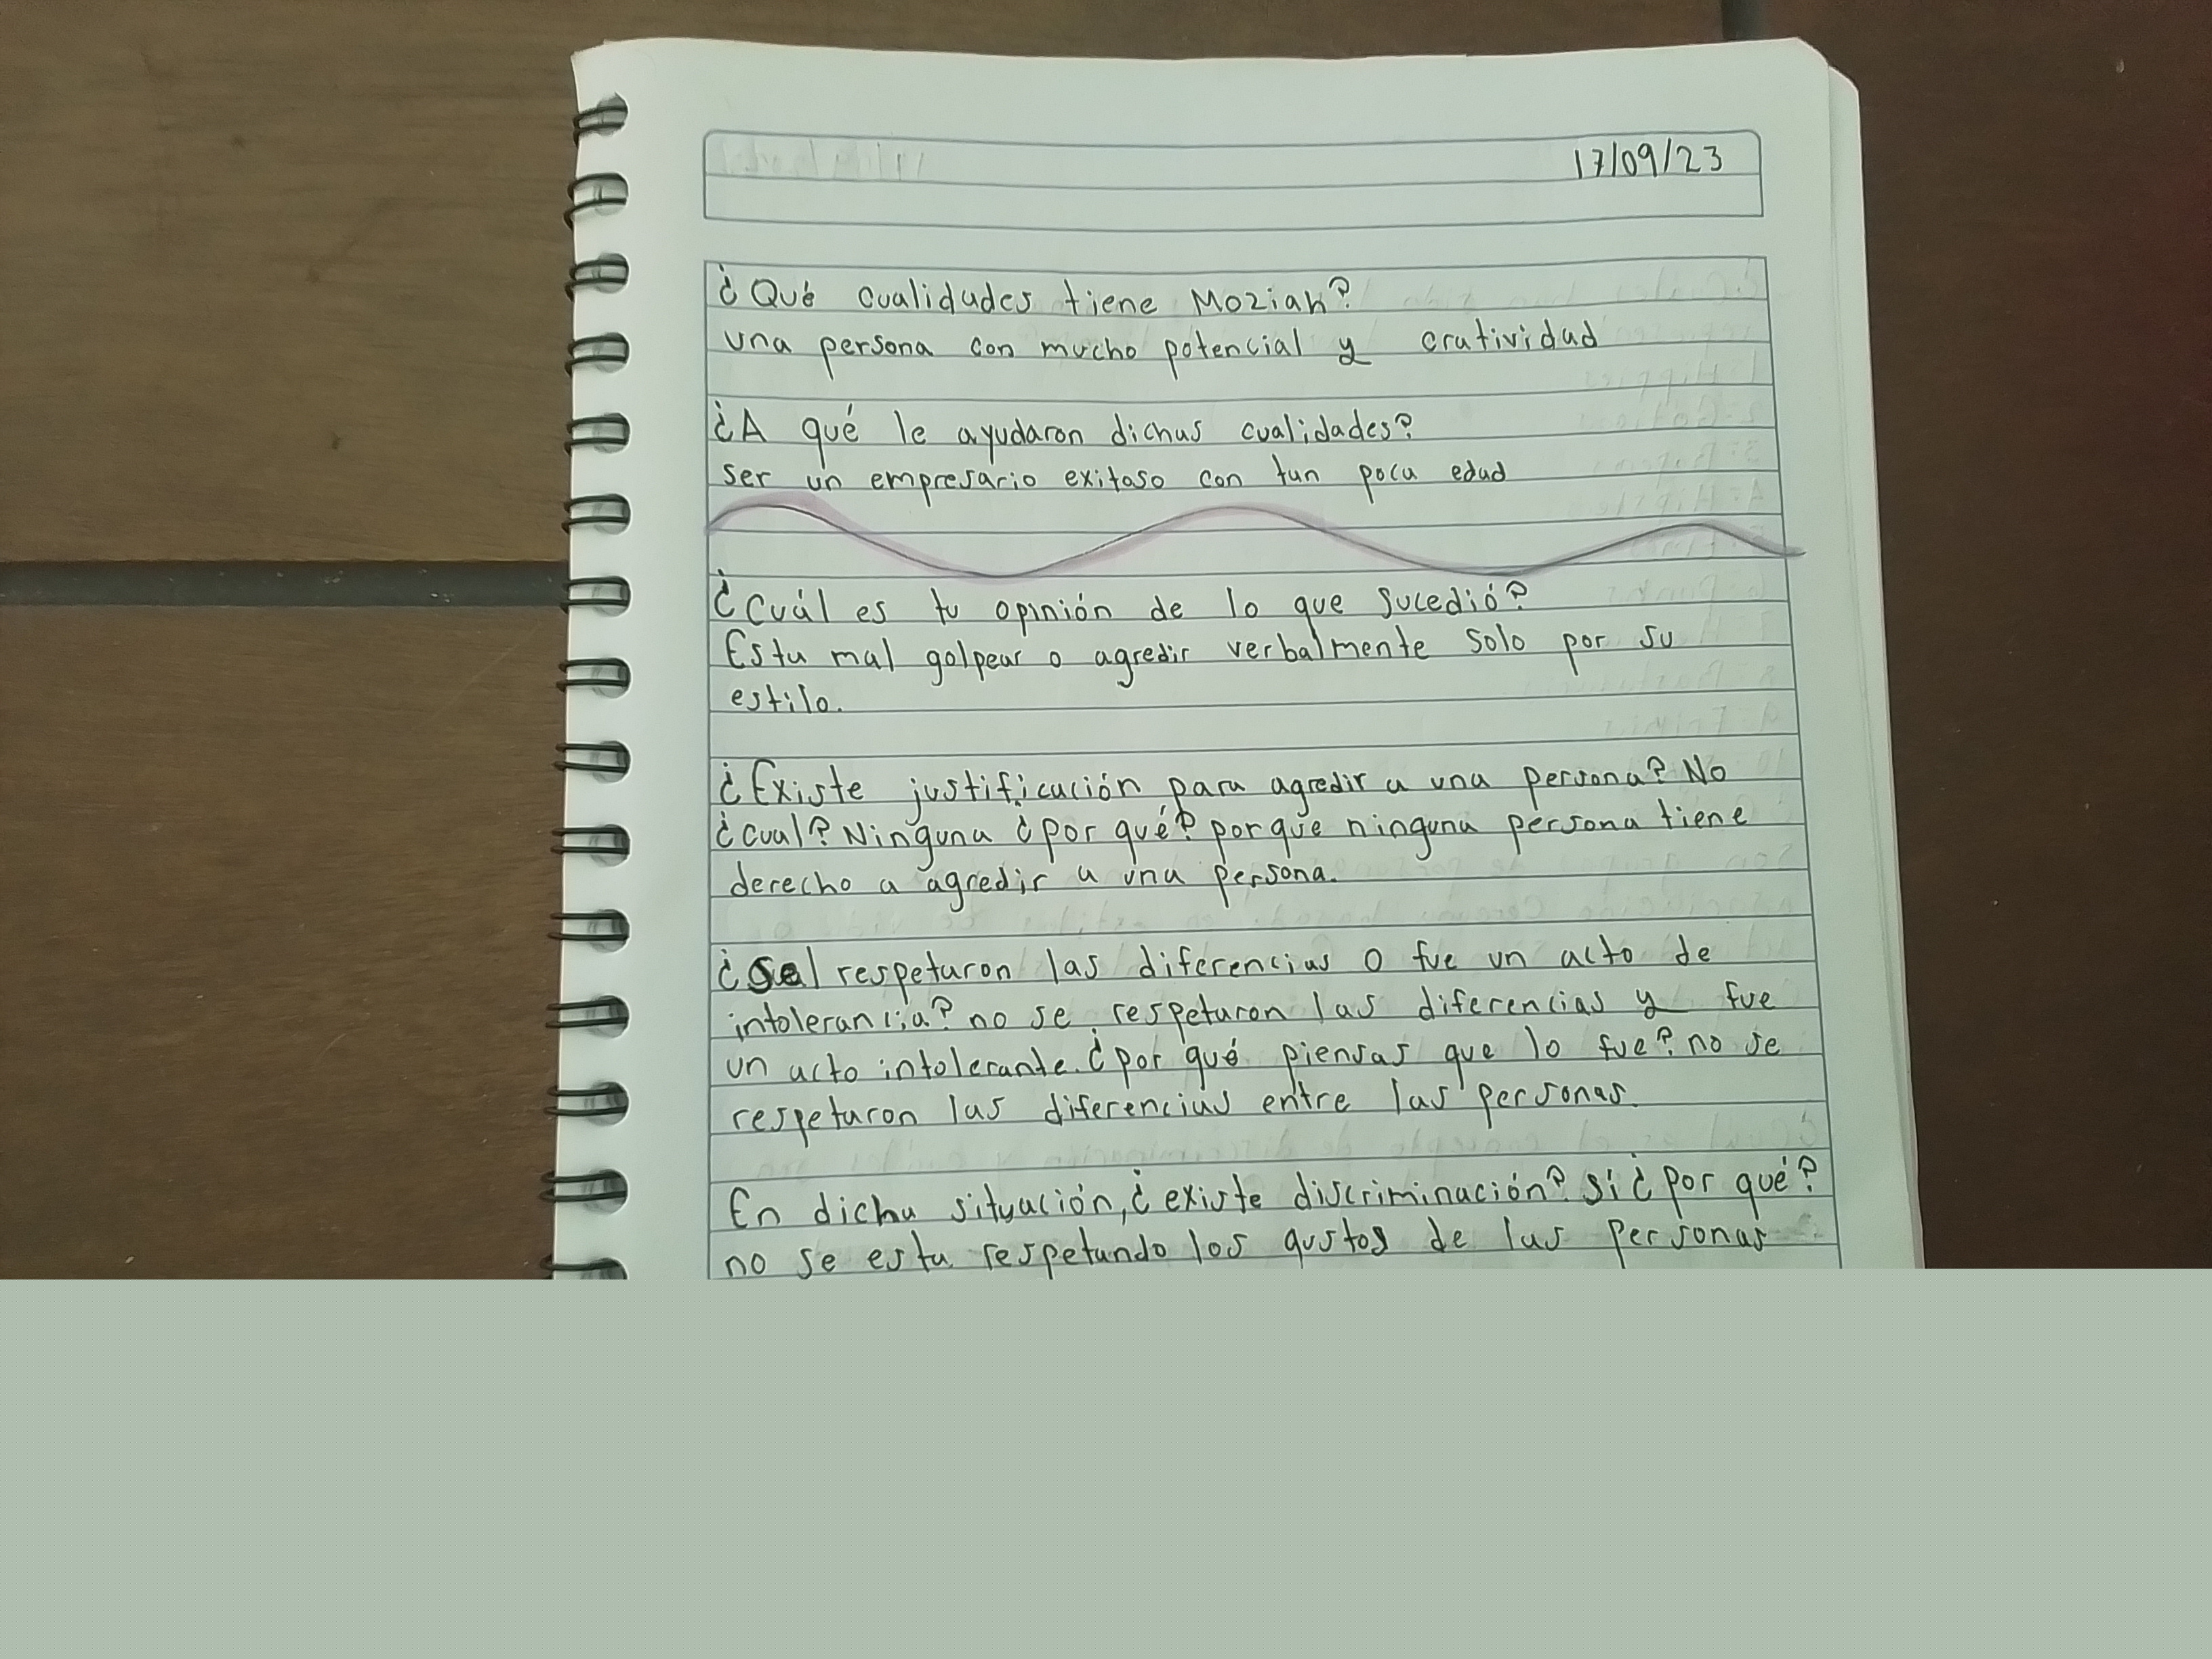 17/09/23
¿Qué cualidades tiene Moziah?
una persona con mucho potencial y cratividad
¿A qué le ayudaron dichas cualidades?
ser un empresario exitoso con tan poca edad
¿Cuál es tu opinión de lo que sucedió?
Esta mal golpear o agredir verbalmente solo por su
estilo.
¿Existe justificación para agredir a una persona? No
¿cual? Ninguna ¿por qué? porque ninguna persona tiene
derecho a agredir a una persona.
¿Se respetaron las diferencias o fue un acto de
intolerancia? no se respetaron las diferencias y fue
un acto intolerante. ¿por qué piensas que lo fue? no se
respetaron las diferencias entre las personas.
En dicha situación, ¿existe discriminación? si ¿por qué?
no se esta respetando los gustos de las personas